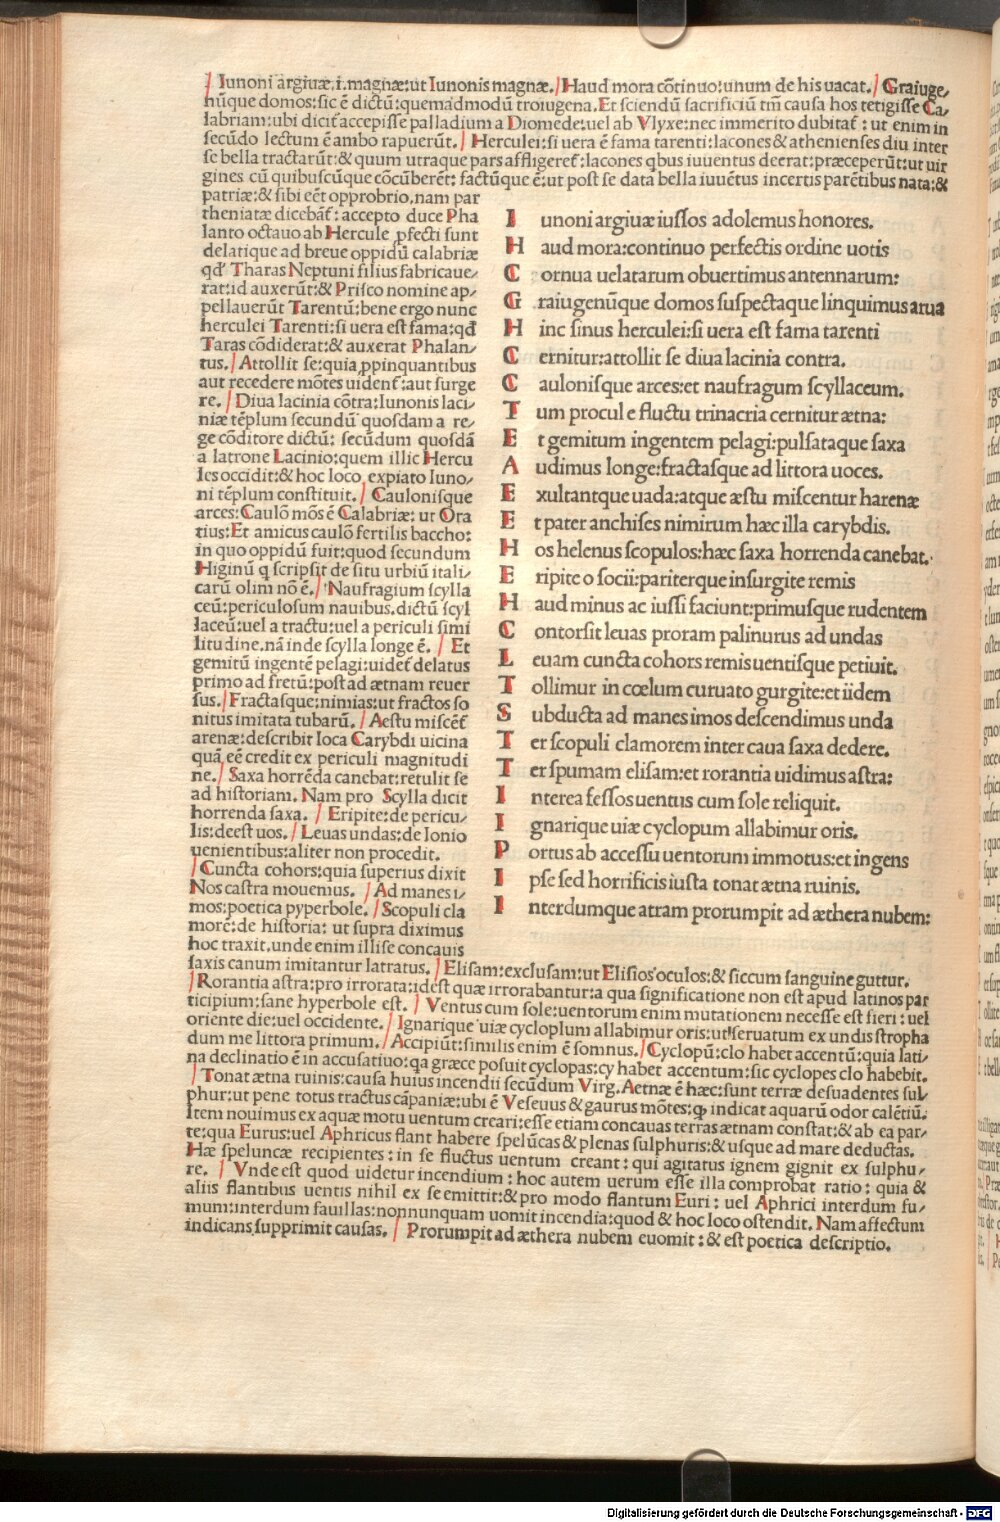 / Iunoni argiuæ.i.magnæ:ut Iunonis magnæ./ Haud mora cōtinuo:unum de his uacat./ Graiuge/
nūque domos:sic ē dictū:quemadmodū troiugena.Et sciendū sacrificiū tm̄ causa hos tetigisse Ca/
labriam:ubi dicit᷑ accepisse palladium a Diomede:uel ab Vlyxe:nec immerito dubitat᷑ : ut enim in
secūdo lectum ē ambo rapuerūt./ Herculei:si uera ē fama tarenti:lacones & athenienses diu inter
se bella tractarūt:& quum utraque pars affligeret᷑:lacones qbus iuuentus deerat:præceperūt:ut uir
gines cū quibuscūque cōcūberēt: factūque ē:ut post se data bella iuuētus incertis parētibus nata:&
patriæ:& sibi eēt opprobrio.nam par
theniatæ dicebāt᷑: accepto duce Pha
lanto octauo ab Hercule ꝓfecti sunt
delatique ad breue oppidū calabriæ
qd' Tharas Neptuni filius fabricaue/
rat:id auxerūt:& Prisco nomine ap/
pellauerūt Tarentū:bene ergo nunc
herculei Tarenti:si uera est fama:qd
Taras cōdiderat:& auxerat Phalan/
tus./ Attollit se:quia ꝓpinquantibus
aut recedere mōtes uident᷑:aut surge
re./ Diua lacinia cōtra:Iunonis laci/
niæ tēplum secundū quosdam a re/
ge cōditore dictū: secūdum quosdā
a latrone Lacinio:quem illic Hercu
les occidit:& hoc loco expiato Iuno/
ni tēplum constituit./ Caulonisque
arces:Caulō mōs ē Calabriæ: ut Ora
tius:Et amicus caulō fertilis baccho:
in quo oppidū fuit:quod secundum
Higinū q scripsit de situ urbiū itali/
carū olim nō ē./ Naufragium scylla
ceū:periculosum nauibus.dictū scyl
laceū:uel a tractu:uel a periculi simi
litudine.nā inde scylla longe ē./ Et
gemitū ingentē pelagi:uidet᷑ delatus
primo ad fretū:post ad ætnam reuer
sus./ Fractasque:nimias:ut fractos so
nitus imitata tubarū./ Aestu miscēt᷑
arenæ:describit loca Carybdi uicina
quā eē credit ex periculi magnitudi
ne./ Saxa horrēda canebat:retulit se
ad historiam. Nam pro Scylla dicit
horrenda saxa./ Eripite:de pericu/
lis:deest uos./ Leuas undas:de Ionio
uenientibus:aliter non procedit.
/ Cuncta cohors:quia superius dixit
Nos castra mouemus./ Ad manes i/
mos:poetica pyperbole./ Scopuli cla
morē:de historia: ut supra diximus
hoc traxit.unde enim illise concauis
saxis canum imitantur latratus./ Elisam:exclusam:ut Elisios oculos:& siccum sanguine guttur.
/ Rorantia astra:pro irrorata:idest quæ irrorabantur:a qua significatione non est apud latinos par
ticipium:sane hyperbole est./ Ventus cum sole:uentorum enim mutationem necesse est fieri : uel
oriente die:uel occidente./ Ignarique uiæ cycloplum allabimur oris:ut!seruatum ex undis stropha
dum me littora primum./ Accipiūt:similis enim ē somnus./ Cyclopū:clo habet accentū:quia lati/
na declinatio ē in accusatiuo:qa græce posuit cyclopas:cy habet accentum:sic cyclopes clo habebit.
/ Tonat ætna ruinis:causa huius incendii secūdum Virg.Aetnæ ē hæc:sunt terræ desuadentes sul/
phur:ut pene totus tractus cāpaniæ:ubi ē Veseuus & gaurus mōtes:ꝙ indicat aquarū odor calētiū.
Item nouimus ex aquæ motu uentum creari:esse etiam concauas terras ætnam constat:& ab ea par/
te:qua Eurus:uel Aphricus flant habere spelūcas & plenas sulphuris:& usque ad mare deductas.
Hæ speluncæ recipientes : in se fluctus uentum creant : qui agitatus ignem gignit ex sulphu/
re./ Vnde est quod uidetur incendium : hoc autem uerum esse illa comprobat ratio : quia &
aliis flantibus uentis nihil ex se emittit:& pro modo flantum Euri : uel Aphrici interdum fu/
mum:interdum fauillas:nonnunquam uomit incendia:quod & hoc loco ostendit. Nam affectum
indicans supprimit causas./ Prorumpit ad æthera nubem euomit : & est poetica descriptio.
I unoni argiuæ iussos adolemus honores.
H aud mora:continuo perfectis ordine uotis
C ornua uelatarum obuertimus antennarum:
G raiugenūque domos suspectaque linquimus arua
H inc sinus herculei:si uera est fama tarenti
C ernitur:attollit se diua lacinia contra.
C aulonisque arces:et naufragum scyllaceum.
T um procul e fluctu trinacria cernitur ætna:
E t gemitum ingentem pelagi:pulsataque saxa
A udimus longe:fractasque ad littora uoces.
E xultantque uada:atque æstu miscentur harenæ
E t pater anchises nimirum hæc illa carybdis.
H os helenus scopulos:hæc saxa horrenda canebat.
E ripite o socii:pariterque insurgite remis
H aud minus ac iussi faciunt:primusque rudentem
C ontorsit leuas proram palinurus ad undas
L euam cuncta cohors remis uentisque petiuit.
T ollimur in cœlum curuato gurgite:et iidem
S ubducta ad manes imos descendimus unda
T er scopuli clamorem inter caua saxa dedere.
T er spumam elisam:et rorantia uidimus astra:
I nterea fessos uentus cum sole reliquit.
I gnarique uiæ cyclopum allabimur oris.
P ortus ab accessu uentorum immotus:et ingens
I pse sed horrificis iuxta tonat ætna ruinis.
I nterdumque atram prorumpit ad æthera nubem:
Digitalisierung gefördert durch die Deutsche Forschungsgemeinschaft - DFG